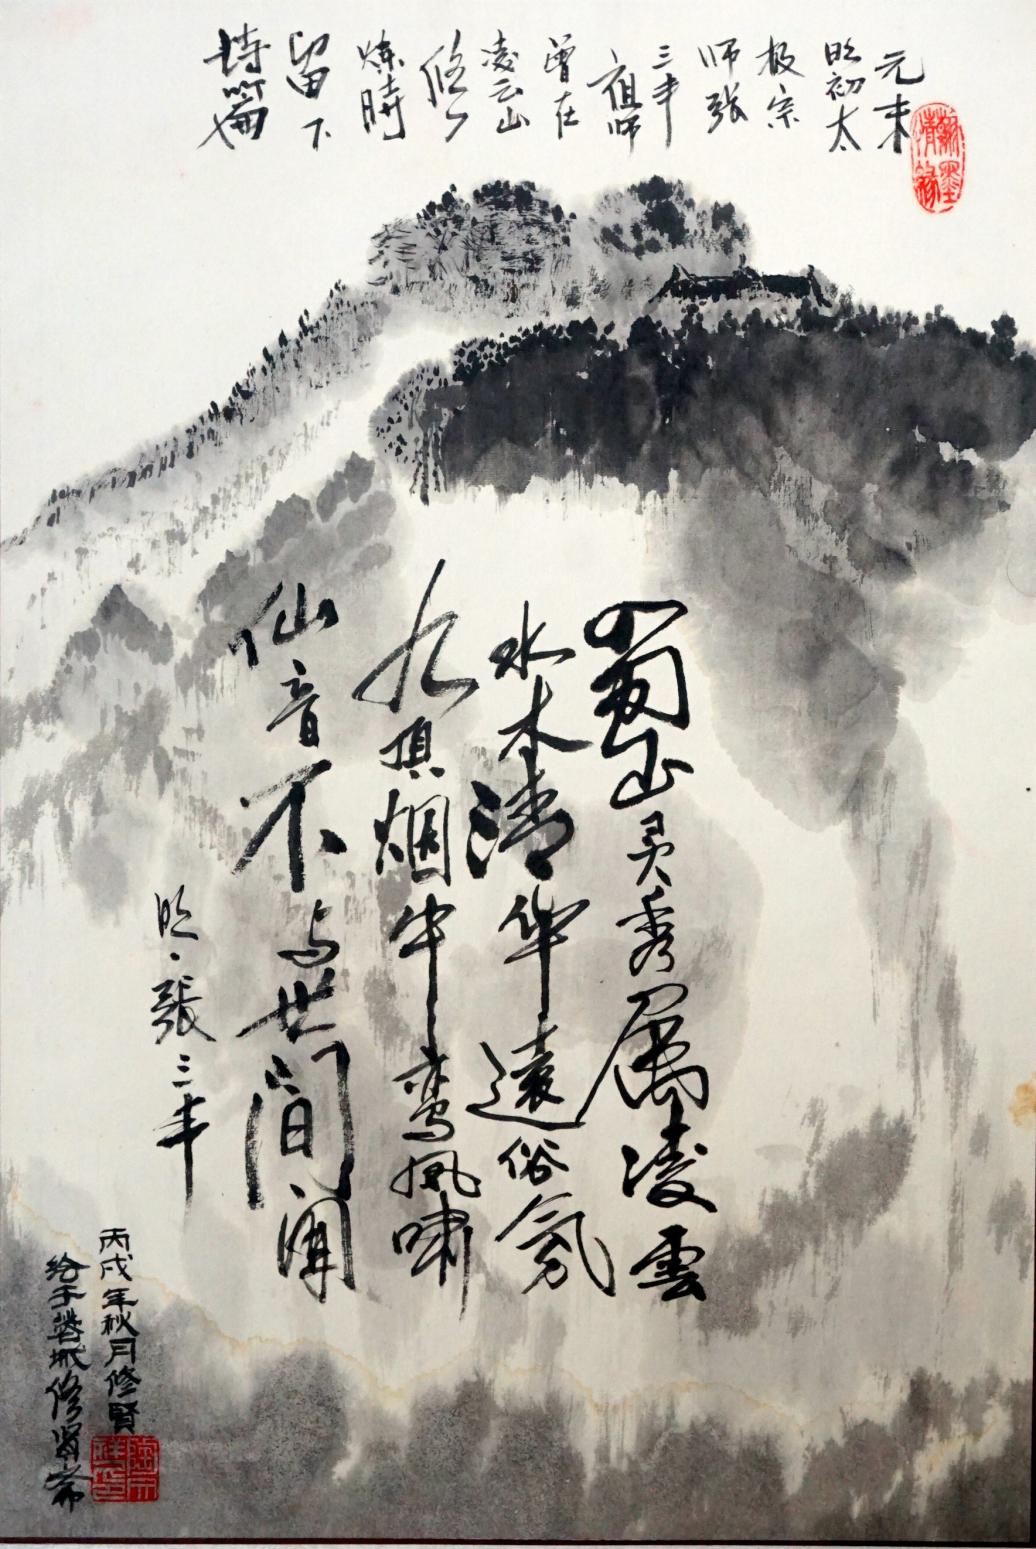 元末
明初太
极宗
师张
三丰
祖师
曾在
凌云山
修
炼时
留下
诗篇
蜀山灵秀属凌雲
水木清华遠俗氛
九顶烟中鸾凤啸
仙音不与世间闻
明·張三丰
丙戌年秋月修賢
绘于蓉城修賢斋
翰墨
情缘